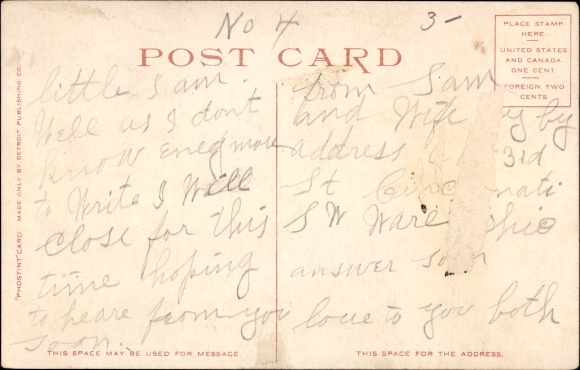 No 4
3-
PLACE STAMP
HERE
UNITED STATES
AND CANADA
ONE CENT
FOREIGN, TWO
CENTS
POST CARD
"PHOSTINT" CARD MADE ONLY BY DETROIT PUBLISHING CO.
little Sam.
Well as I dont
know eneq more
to Write I Will
close for this
time hoping
to heare from you
soon.
from Sam
and Wife by
address 3rd
St Cincinnati
S W Ware Ohio
answer soon
love to you both
THIS SPACE MAY BE USED FOR MESSAGE.
THIS SPACE FOR THE ADDRESS.